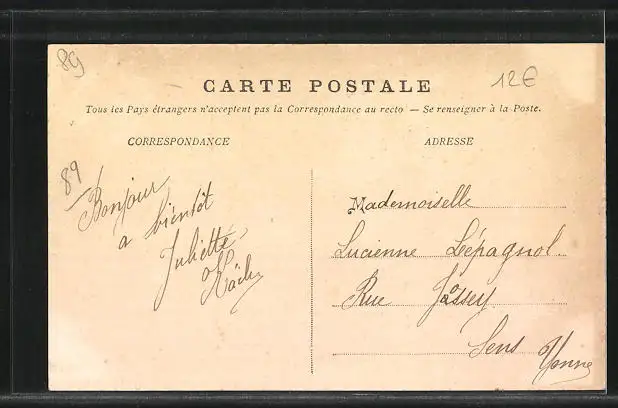 89
12€
CARTE POSTALE
Tous les Pays étrangers n'acceptent pas la Correspondance au recto — Se renseigner à la Poste.
CORRESPONDANCE
ADRESSE
89
Bonjour
a bientôt
Juliette
Mademoiselle
Lucienne Lépagnol
Rue Jossey
Sens Yonne